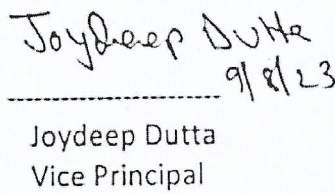 Joydeep Dutta
9/8/23
Joydeep Dutta
Vice Principal